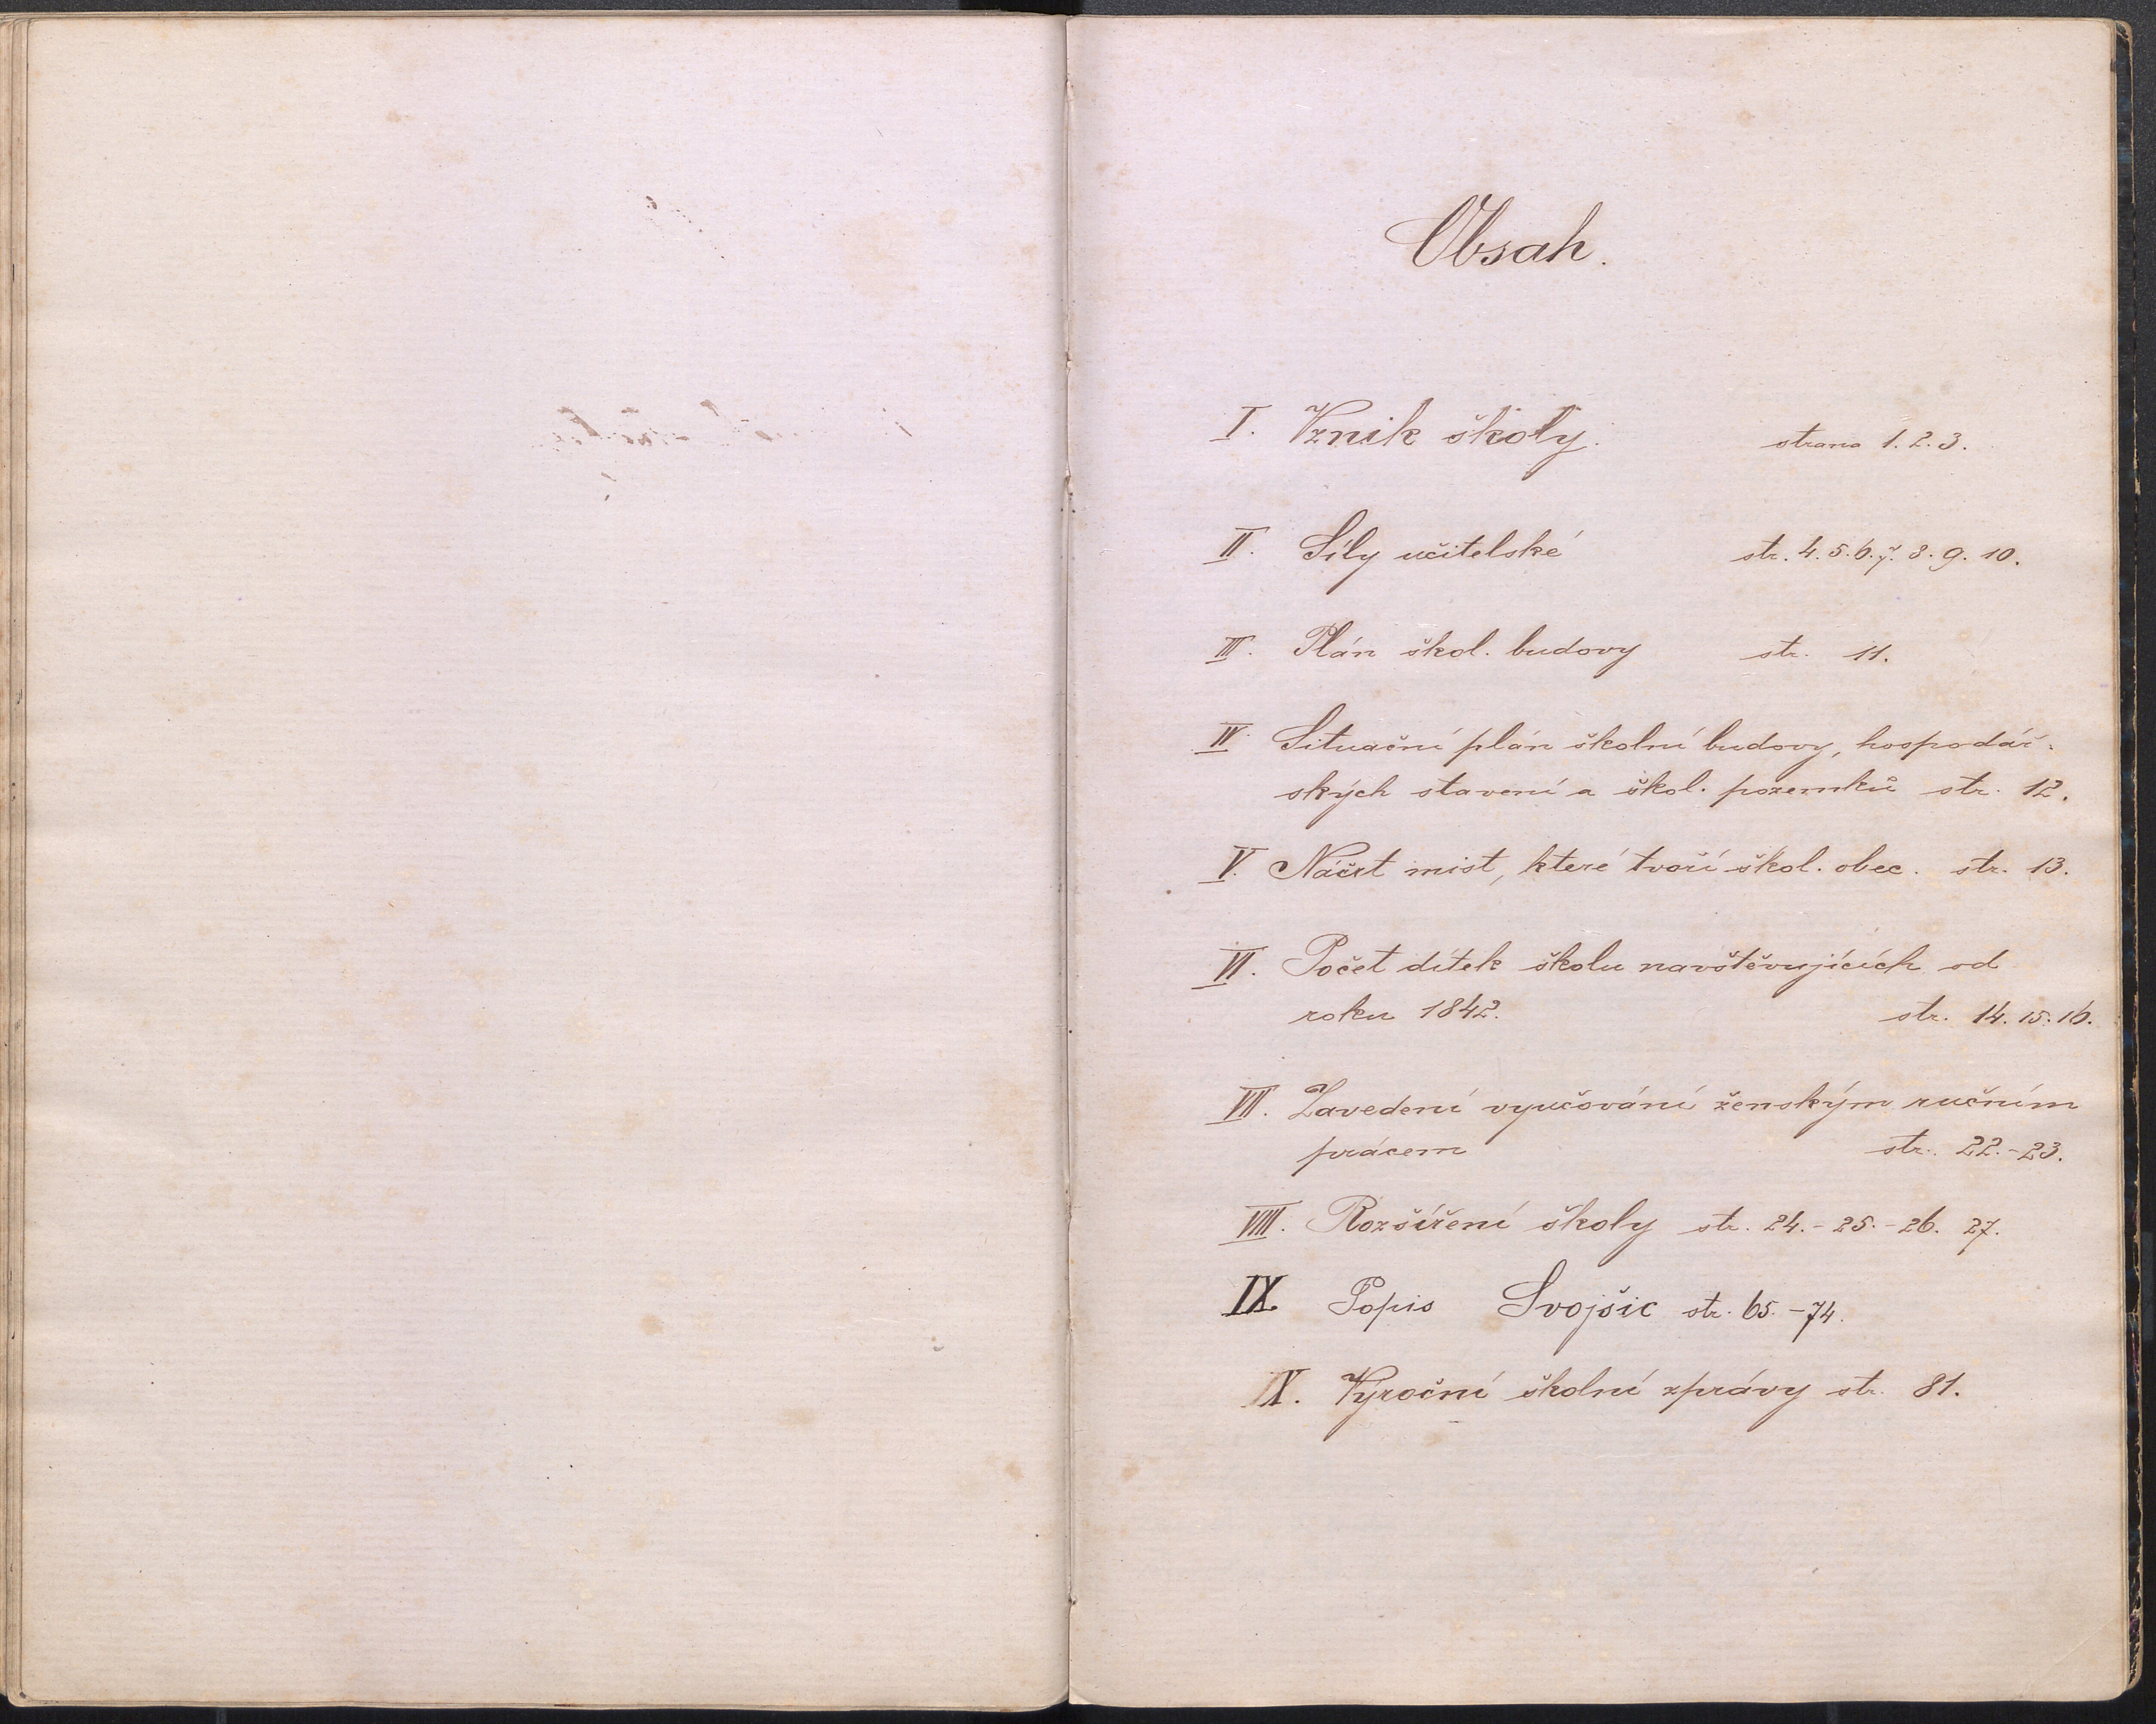 Obsah.
I. Vznik školy. strana 1. 2. 3.
II. Síly učitelské str. 4. 5. 6. 7. 8. 9. 10.
III. Plán škol. budovy str. 11.
IV. Situační plán školní budovy, hospodář-
ských stavení a škol. pozemků str. 12.
V. Náčrt míst, které tvoří škol. obec. str. 13.
VI. Počet dítek školu navštěvujících od
roku 1842. str. 14. 15. 16.
VII. Zavedení vyučování ženským ručním
pracem str. 22.-23.
VIII. Rozšíření školy str. 24.-25.-26. 27.
IX Popis Svojšic str. 65.-74.
X. Výroční školní zprávy str. 81.